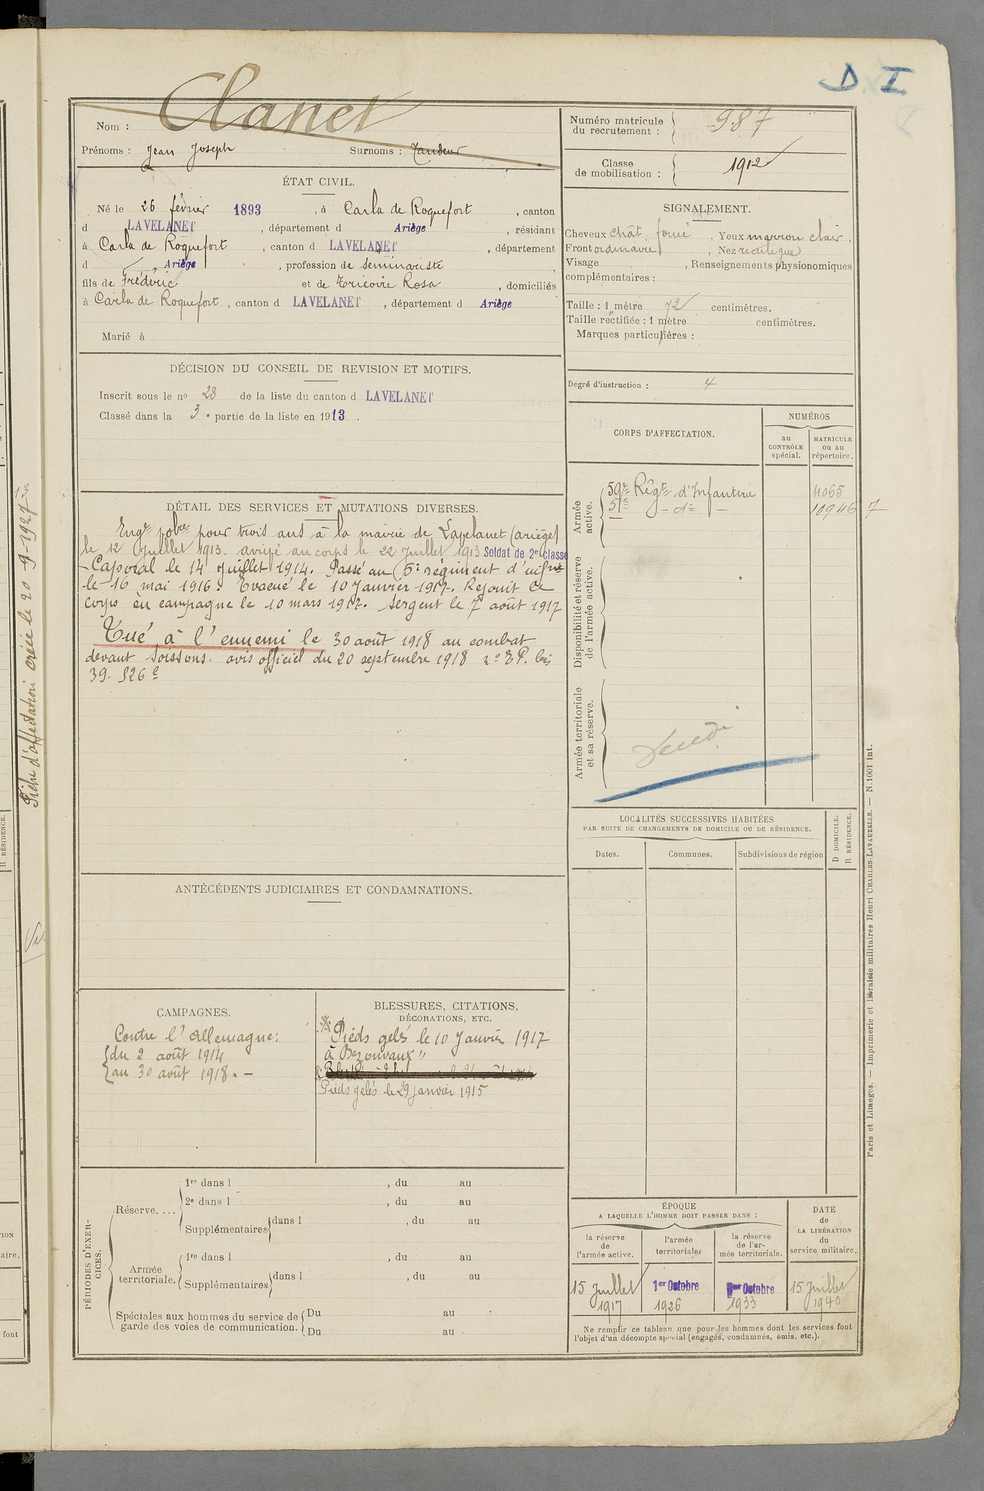 D I
Nom : Clanet
Prénoms : Jean Joseph Surnoms :
Numéro matricule
du recrutement : 987
Classe
de mobilisation : 1912
ÉTAT CIVIL.
Né le 26 février 1893, à Carla de Roquefort, canton
d LAVELANET, département d Ariège, résidant
à Carla de Roquefort, canton d LAVELANET, département
d Ariège, profession de séminariste
fils de Frédéric et de Rosa, domiciliés
à Carla de Roquefort, canton d LAVELANET, département d Ariège
Marié à
SIGNALEMENT.
Cheveux chât. foncé, Yeux marron clair,
Front ordinaire, Nez rectiligne
Visage , Renseignements physionomiques
complémentaires :
Taille : 1 mètre 72 centimètres.
Taille rectifiée : 1 mètre centimètres.
Marques particulières :
Degré d'instruction : 4
DÉCISION DU CONSEIL DE REVISION ET MOTIFS.
Inscrit sous le nº 28 de la liste du canton d LAVELANET
Classé dans la 3e partie de la liste en 1913.
CORPS D'AFFECTATION.
NUMÉROS
au
CONTRÔLE
spécial.
MATRICULE
ou au
répertoire.
Armée
active.
59e Régt d'Infanterie 4065
5e - do - 10946 7
Disponibilité et réserve
de l'armée active.
Armée territoriale
et sa réserve.
DÉTAIL DES SERVICES ET MUTATIONS DIVERSES.
Engé volre pour trois ans à la mairie de Lavelanet (ariège)
le 12 Juillet 1913. arrivé au corps le 22 Juillet 1913 Soldat de 2e classe
Caporal le 14 Juillet 1914. Passé au 5e régiment d'infrie
le 16 mai 1916. Evacué le 10 Janvier 1917. Rejoint le
corps en campagne le 10 mars 1917. Sergent le 7 août 1917
Tué à l'ennemi le 30 août 1918 au combat
devant Soissons. avis officiel du 20 septembre 1918
39. 526e
Fiche d'affectation créée le 20-9-1927
LOCALITÉS SUCCESSIVES HABITÉES
PAR SUITE DE CHANGEMENTS DE DOMICILE OU DE RÉSIDENCE.
Dates.
Communes.
Subdivisions de région
D DOMICILE.
R RÉSIDENCE.
ANTÉCÉDENTS JUDICIAIRES ET CONDAMNATIONS.
CAMPAGNES.
Contre l'Allemagne :
du 2 août 1914
au 30 août 1918. -
BLESSURES, CITATIONS,
DÉCORATIONS, ETC.
Pieds gelés le 10 Janvier 1917
à Bezonvaux"
Pieds gelés le 29 janvier 1915
PÉRIODES D'EXER-
CICES.
Réserve....
1re dans l , du au
2e dans l , du au
Supplémentaires dans l , du au
Armée
territoriale.
1re dans l , du au
Supplémentaires dans l , du au
Spéciales aux hommes du service de
garde des voies de communication.
Du au
Du au
ÉPOQUE
A LAQUELLE L'HOMME DOIT PASSER DANS :
la réserve
de
l'armée active.
l'armée
territoriale.
la réserve
de l'ar-
mée territoriale.
DATE
de
LA LIBÉRATION
du
service militaire.
15 Juillet
1917
1er Octobre
1926
1er Octobre
1933
15 Juillet
1940
Ne remplir ce tableau que pour les hommes dont les services font
l'objet d'un décompte spécial (engagés, condamnés, omis, etc.).
Paris et Limoges. — Imprimerie et librairie militaires Henri CHARLES-LAVAUZELLE. — N. 1001 Int.
R RÉSIDENCE.
font